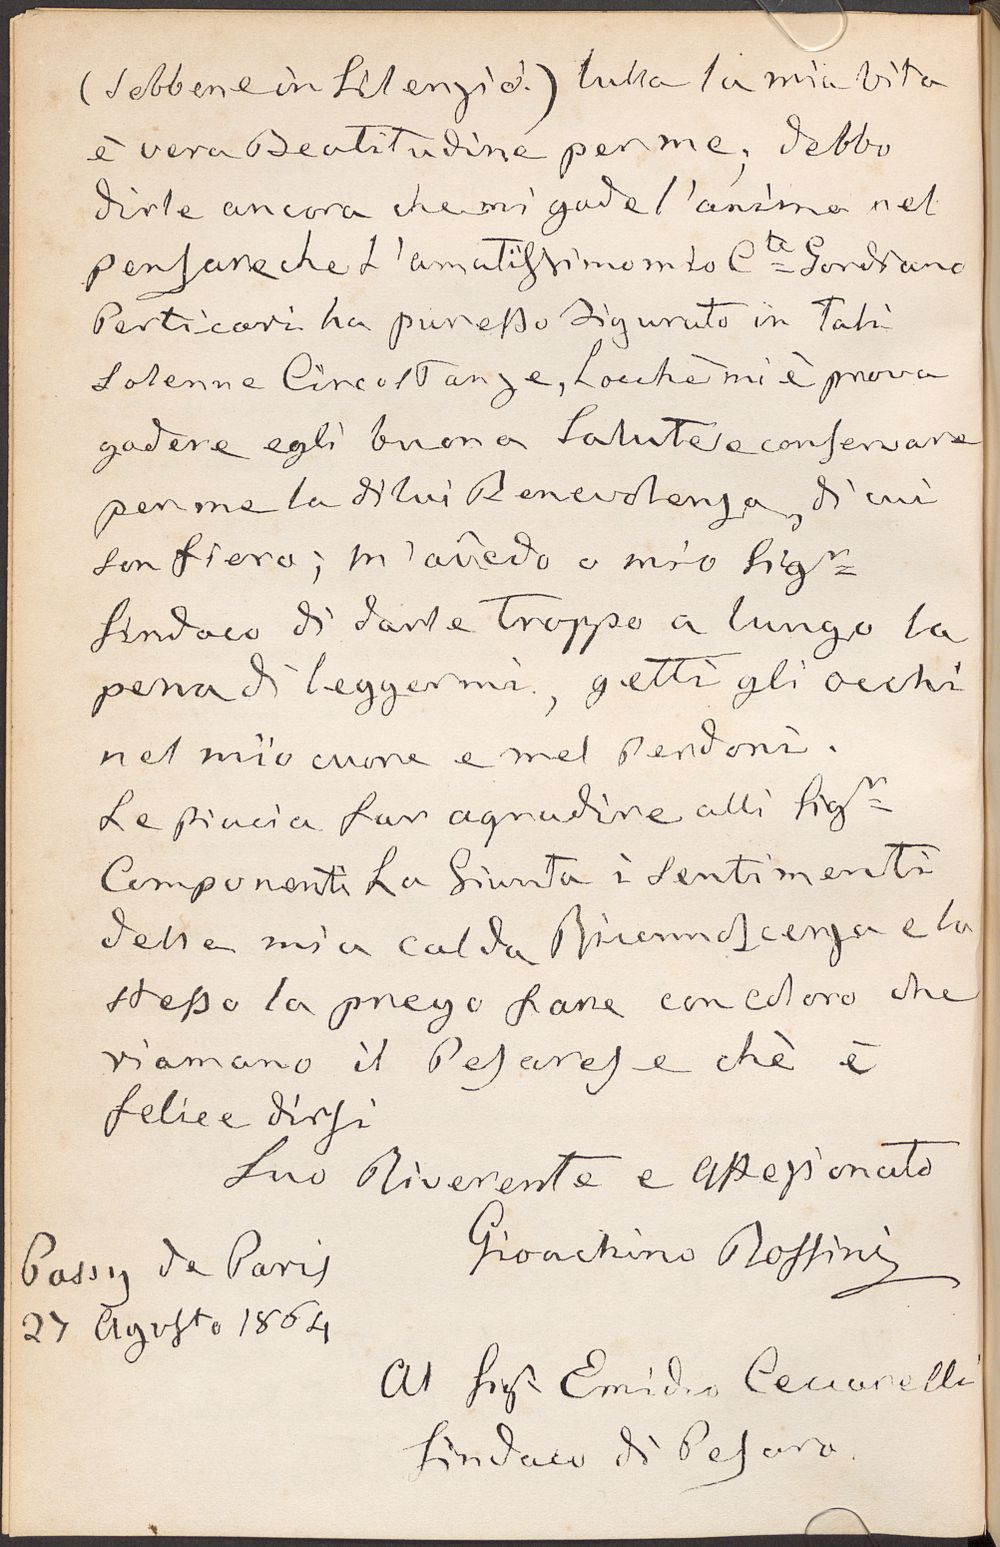 (sebbene in Silenzio.) tutta la mia Vita
è vera Beatitudine per me; debbo
dirle ancora che mi gode l'anima nel
pensare che L'amatissimo mio C.te Gordiano
Perticari ha pur esso Figurato in Tali
Solenne Circostanze, Locchè mi è prova
godere egli buona Salute e conservare
per me la di lui Benevolenza, di cui
son fiero; m'avvedo o mio Sigr
Sindaco di darle Troppo a lungo la
pena di leggermi, getti gli occhi
nel mio cuore e mel Perdoni.
Le piaccia far agradire alli Sigr
Componenti La Giunta i sentimenti
della mia calda Riconnoscenza e lo
stesso la prego fare con coloro che
riamano il Pesarese chè è
felice dirsi
Suo Riverente e Affezionato
Gioachino Rossini
Passy de Paris
27 Agosto 1864
Al Sigr Emidio Ceccarelli
Sindaco di Pesaro.